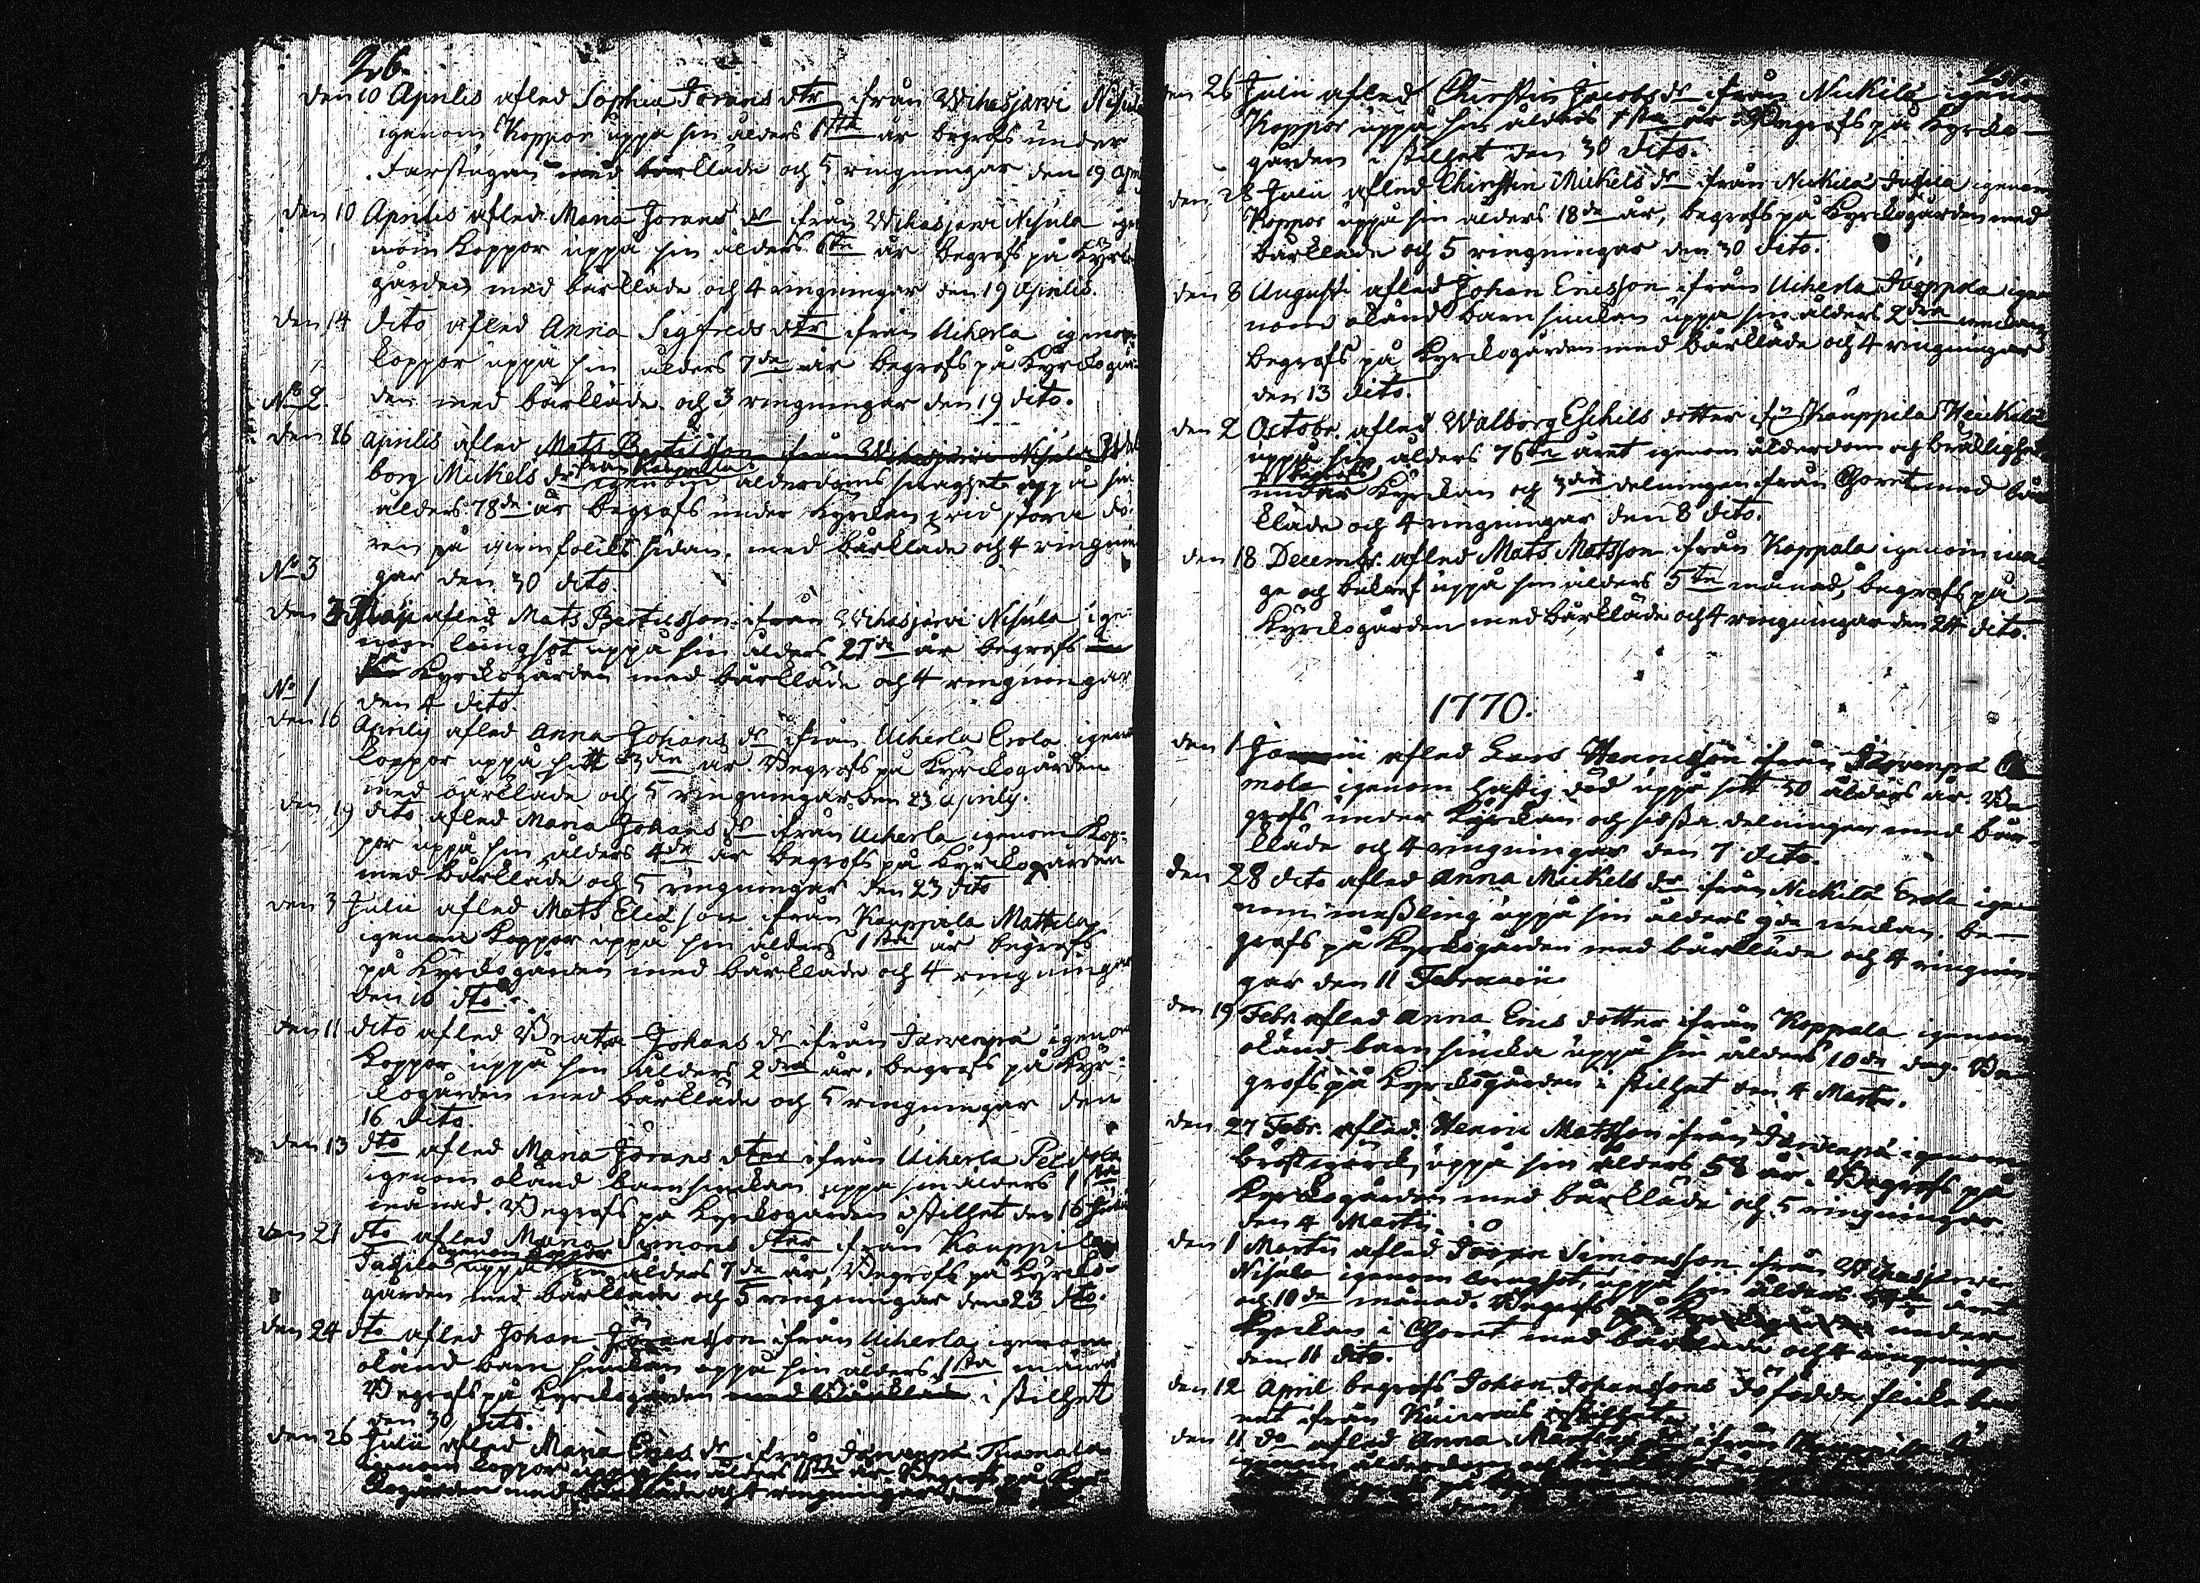 26.
den 10 Aprilis afled Sophia Jörans dtr ifrån Wihasjärvi Nisula
igenom Koppor uppå sin ålders 1sta år begrofs under
farstugan med bårkläde och 5 ringningar den 19 April
den 10 Aprilis afled Maria Jörans dr ifrån Wihasjärvi Nisula ige
nom Koppor uppå sin ålders 6te år begrofs på Kyrko
gården med bårkläde och 4 ringningar den 19 Aprilis.
den 14 dito afled Anna Sigfreds dtr ifrån Uiherla igenom
koppor uppå sin ålders 7de år begrofs på Kyrckogår-
No 2. den med bårkläde och 3 ringningar den 19 dito.
den 26 Aprilis afled Mats Bertilsson ifrån Wihasjärvi Nisula Wal
borg Mickels dr från Kauppila igenom ålderdoms svaghet uppå sin
ålders 78de år begrofs under Kyrckan wid stora dö-
ren på qwinfolcks sidan, med bårkläde och 4 ringnin
No 3 gar den 30 dito
den 3 Maji afled Mats Bertilsson ifrån Wihasjärvi Nisula ige
nom lungsot uppå sin ålders 27de år begrofs
på Kyrckogården med bårkläde och 4 ringningar
No 1 den 4 dito.
den 16 Aprilis afled Anna Johans dr ifrån Uiherla Erola igenom
koppor uppå sitt 3die år. Begrofs på Kyrckogården
med bårkläde och 5 ringningar den 23 Aprilis.
den 19 dito afled Maria Johans dr ifrån Uiherla igenom Kop-
por uppå sin ålders 4de år begrofs på Kyrckogården
med bårkläde och 5 ringningar den 23 dito
den 3 Julii afled Mats Elidsson ifrån Kauppila Mattila
igenom koppor uppå sin ålders 1sta år begrofs
på Kyrckogården med bårkläde och 4 ringningar
den 10 dto.
den 11 dito afled Beata Johans dr ifrån Järvenpä igenom
Koppor uppå sin ålders 2dra år, begrofs på Kyr-
ckogården med bårkläde och 5 ringningar den
16 dito.
den 13 dto afled Maria Jörans dter ifrån Uiherla
igenom okänd barnsjuckan uppå sin ålders 1sta
månad. Begrofs på Kyrckogården i stillhet den 16 Julii
den 21 dto afled Maria Simons dter ifrån Kauppila
igenom koppor
uppå sin ålders 7de år, Begrofs på Kyrcko-
gården med bårkläde och 5 ringningar den 23 dto.
den 24 dto afled Johan Jöransson ifrån Uiherla igenom
okänd barn sjuckan uppå sin ålders 1sta månad
Begrofs på Kyrckogården med bårkläde i stillhet
den 30 dito.
den 26 Julii afled Maria Erics dr ifrån Järvenpä
igenom koppor uppå sin ålders år Begrofs på Kyr-
ckogården med bårkläde och 4 ringningar den
den 26 Julii afled Christin Jacobs dr ifrån Nickilä igenom
Koppor uppå sin ålders 1sta år Begrofs på Kyrcko-
gården i stillhet den 30 dito.
den 28 Julii afled Christin Mickels dr ifrån Nickilä igenom
Koppor uppå sin ålders 18de år, begrofs på Kyrckogården med
bårkläde och 5 ringningar den 30 dito.
den 8 Augusti afled Johan Ericsson ifrån Uiherla ige
nom okänd barn sjuckan uppå sin ålders 2dra weckan
begrofs på Kyrckogården med bårkläde och 4 ringningar
den 13 dito.
den 2 Octobr. afled Walborg Eschils dotter ifrån Kauppila Heickilä
uppå sin ålders 76te året igenom ålderdom och bräcklighet
begrofs
under Kyrckan och 3die delningen från Choret med bår
kläde och 4 ringningar den 8 dito.
den 18 Decembr. afled Mats Matsson ifrån Koppala igenom ma-
ge och bukref uppå sin ålders 5te månad, begrofs på
Kyrckogården med bårkläde och 4 ringningar den 24 dito.
1770.
den 1 Januarii afled Lars Hennicsson ifrån Järvenpä
mola igenom hastig död uppå sitt 50 ålders år. Be
grofs under Kyrckan och sidsta delningen med bår-
kläde och 4 ringningar den 7 dito.
den 28 dito afled Anna Mickels dr ifrån Nickilä Erola ige-
nom messling uppå sin ålders 9de weckan be-
grofs på Kyrckogården med bårkläde och 4 ringnin
gar den 11 Februarii
den 19 Febr. afled Anna Erics dotter ifrån Koppala igenom
okänd barnsjucka uppå sin ålders 10de dag. Be
grofs på Kyrckogården i stillhet den 4 Martii.
den 27 Febr. afled Henric Matsson ifrån Järvenpä igenom
bröstwärck, uppå sin ålders 58 år. Begrofs på
Kyrckogården med bårkläde och 5 ringningar
den 4 Martii.
den 1 Martii afled Jöran Simonsson ifrån Wihasjärvi
Nisula igenom lungsot, uppå sin ålders året
och 10de månad. Begrofs på Kyrckogården under
Kyrckan i Choret med bårkläde och 4 ringningar
den 11 dito.
den 12 April begrofs Johan Johanssons dödfödde flicke ba
net ifrån i stillhet
den 11 do afled Anna Mårtens dr ifrån
igenom ålderdom